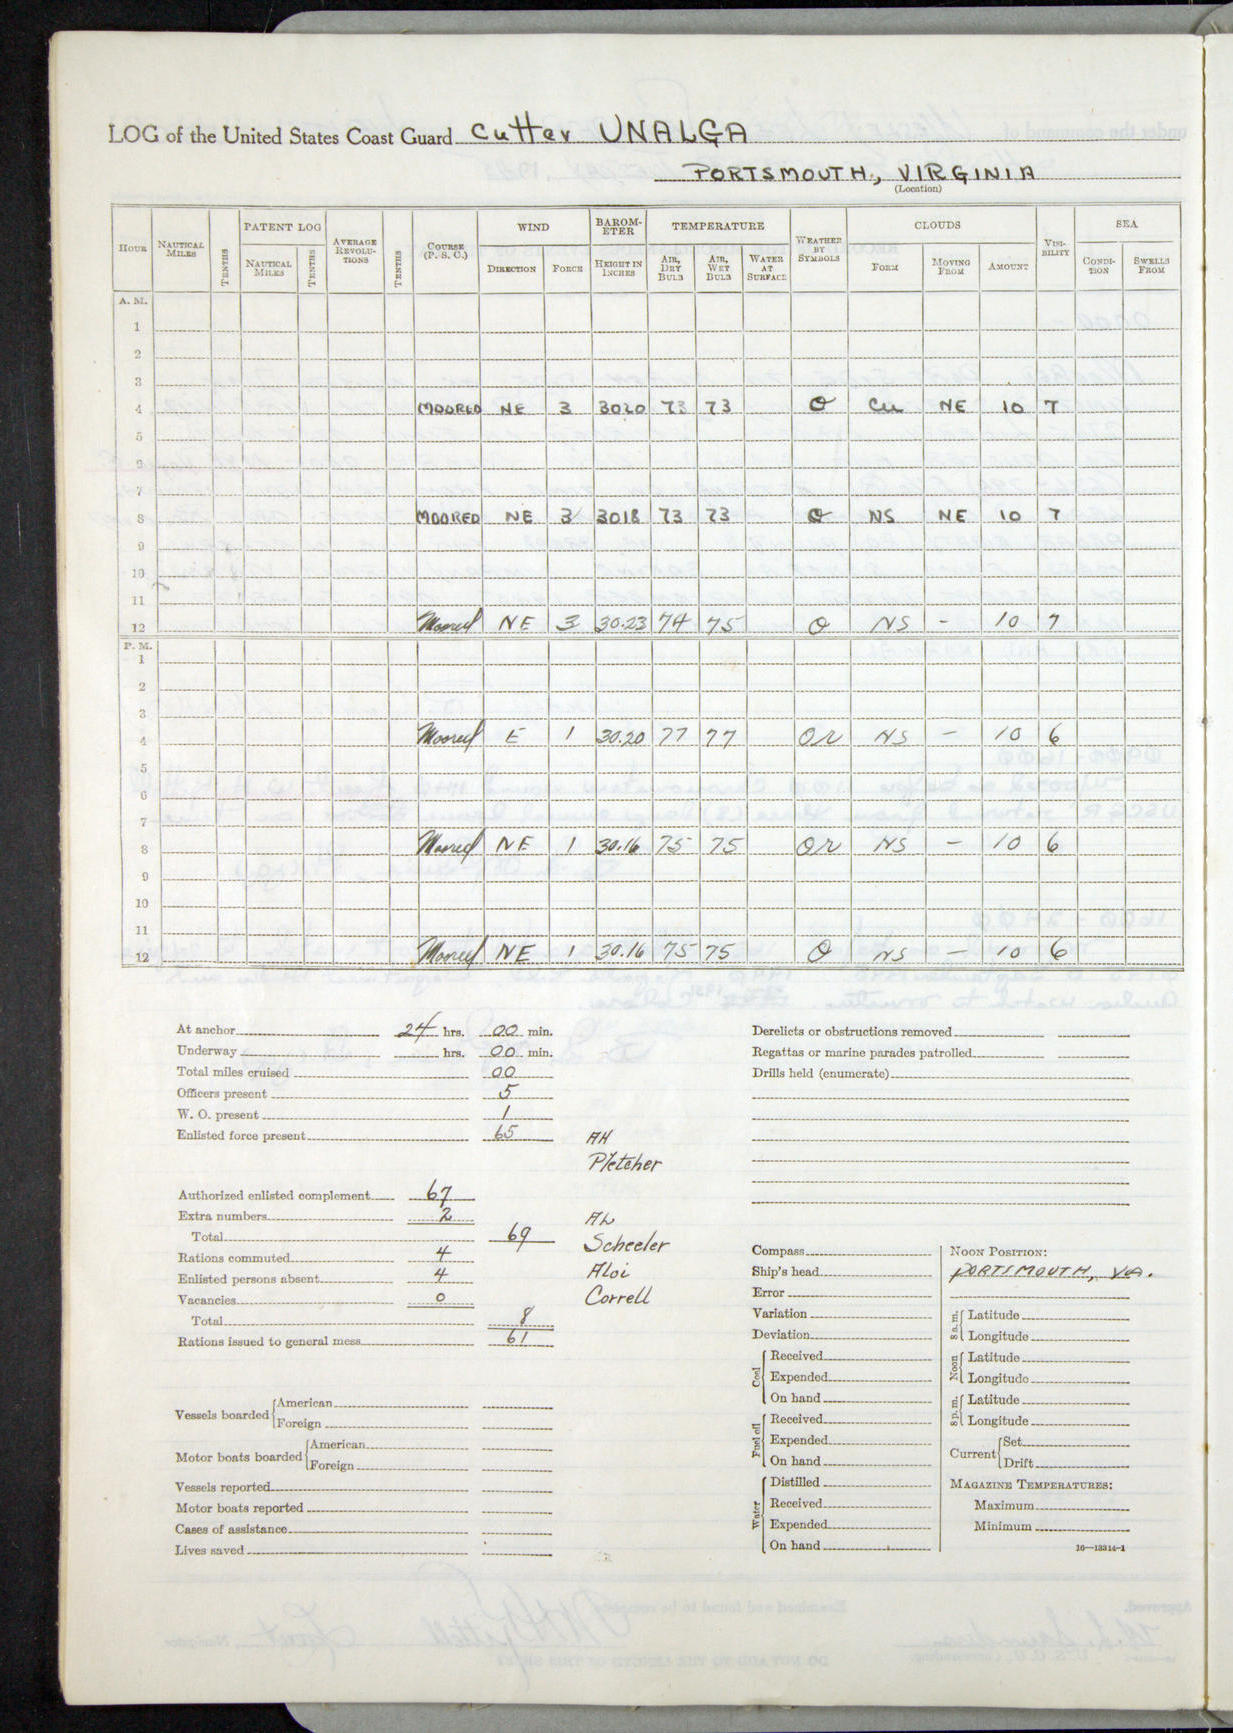 LOG of the United States Coast Guard Cutter UNALGA
PORTSMOUTH, VIRGINIA
(Location)
HOUR NAUTICAL MILES TENTHS PATENT LOG NAUTICAL MILES TENTHS AVERAGE REVOLUTIONS TENTHS COURSE (P. S. C.) WIND DIRECTION FORCE BAROMETER HEIGHT IN INCHES TEMPERATURE AIR, DRY BULB AIR, WET BULB WATER AT SURFACE WEATHER BY SYMBOLS CLOUDS FORM MOVING FROM AMOUNT VISIBILITY SEA CONDITION SWELLS FROM
A. M.
1
2
3
4 MOORED NE 3 3020 73 73 O Cu NE 10 7
5
6
7
8 MOORED NE 3 3018 73 73 O NS NE 10 7
9
10
11
12 Moored NE 3 30.23 74 75 O NS - 10 7
P. M.
1
2
3
4 Moored E 1 30.20 77 77 OR NS - 10 6
5
6
7
8 Moored NE 1 30.16 75 75 OR NS - 10 6
9
10
11
12 Moored NE 1 30.16 75 75 O NS - 10 6
At anchor 24 hrs. 00 min.
Underway hrs. 00 min.
Total miles cruised 00
Officers present 5
W. O. present 1
Enlisted force present 65
AH
Pletcher
Authorized enlisted complement 67
Extra numbers 2
Total 69
Rations commuted 4
Enlisted persons absent 4
Vacancies 0
Total 8
Rations issued to general mess 61
AL
Scheeler
Aloi
Correll
Vessels boarded American
Foreign
Motor boats boarded American
Foreign
Vessels reported
Motor boats reported
Cases of assistance
Lives saved
Derelicts or obstructions removed
Regattas or marine parades patrolled
Drills held (enumerate)
Compass
Ship's head
Error
Variation
Deviation
Coal Received
Expended
On hand
Fuel oil Received
Expended
On hand
Water Distilled
Received
Expended
On hand
NOON POSITION:
PORTSMOUTH, VA.
8 a. m. Latitude
Longitude
Noon Latitude
Longitude
8 p. m. Latitude
Longitude
Current Set
Drift
MAGAZINE TEMPERATURES:
Maximum
Minimum
16—13314-1